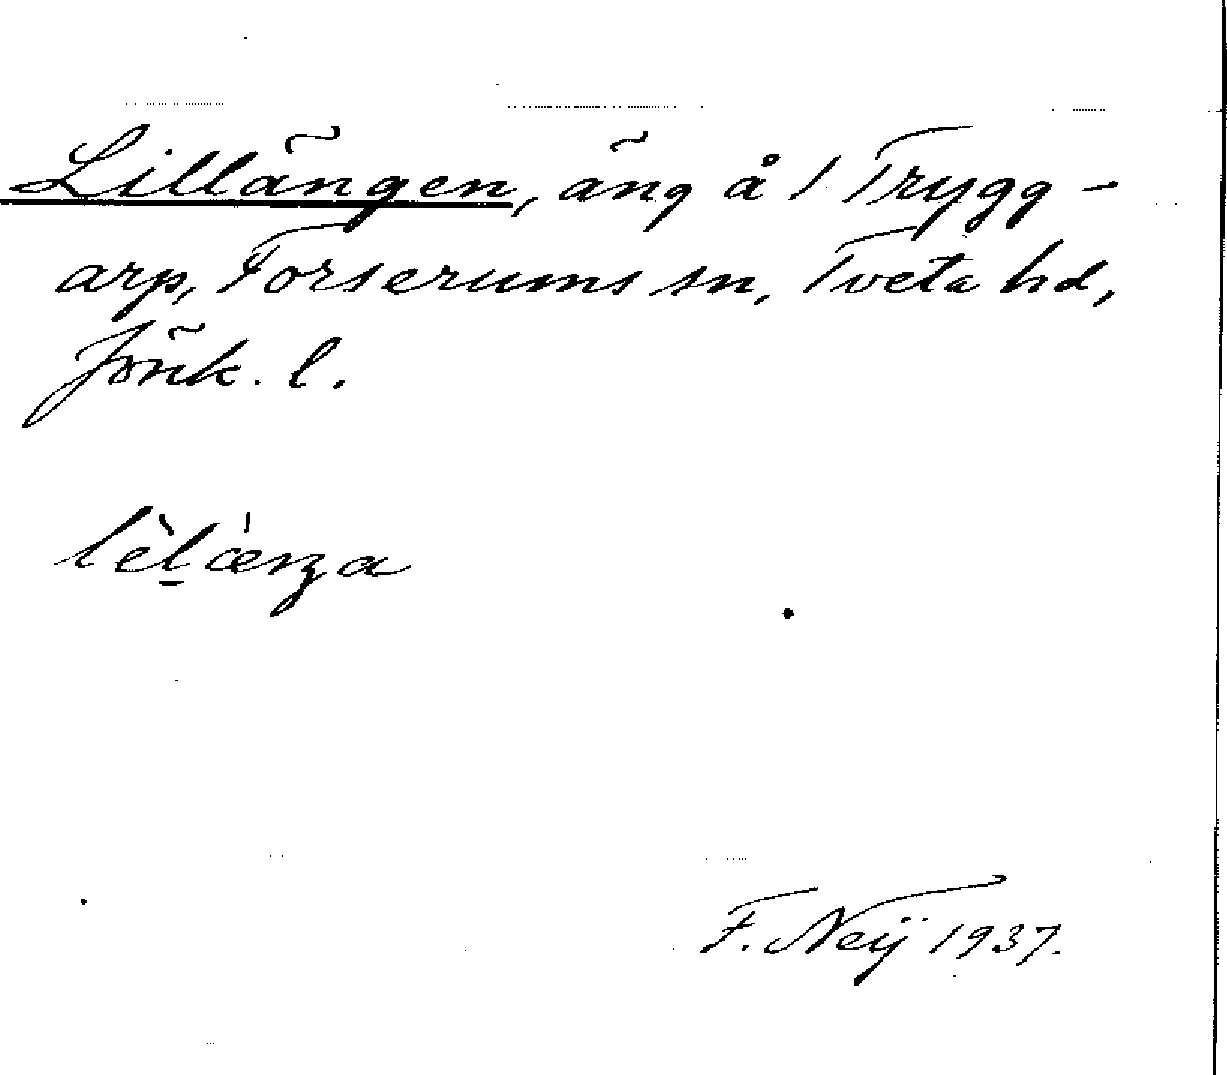 Lillängen, äng å 1 Trygg-
arp, Forserums sn, Tveta hd,
Jönk. l.
F. Neÿ 1937.